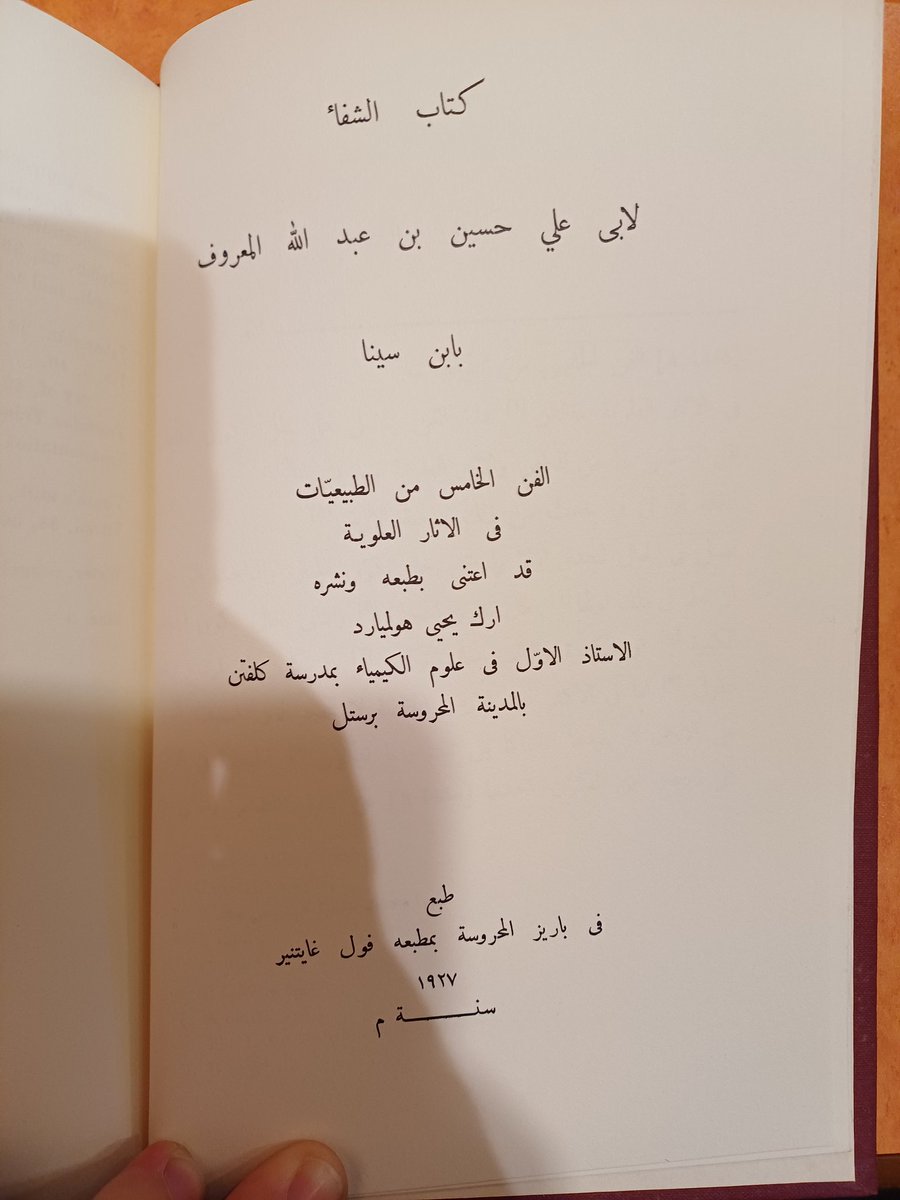 كتاب الشفائ
لابى علي حسين بن عبد الله المعروف
بابن سينا
الفن الخامس من الطبيعيّات
فى الاثار العلوية
قد اعتنى بطبعه ونشره
ارك يحيى هولميارد
الاستاذ الاوّل فى علوم الكيمياء بمدرسة كلفتن
بالمدينة المحروسة برستل
طبع
فى باريز المحروسة بمطبعه فول غايتنير
١٩٢٧
سنـــــــة م